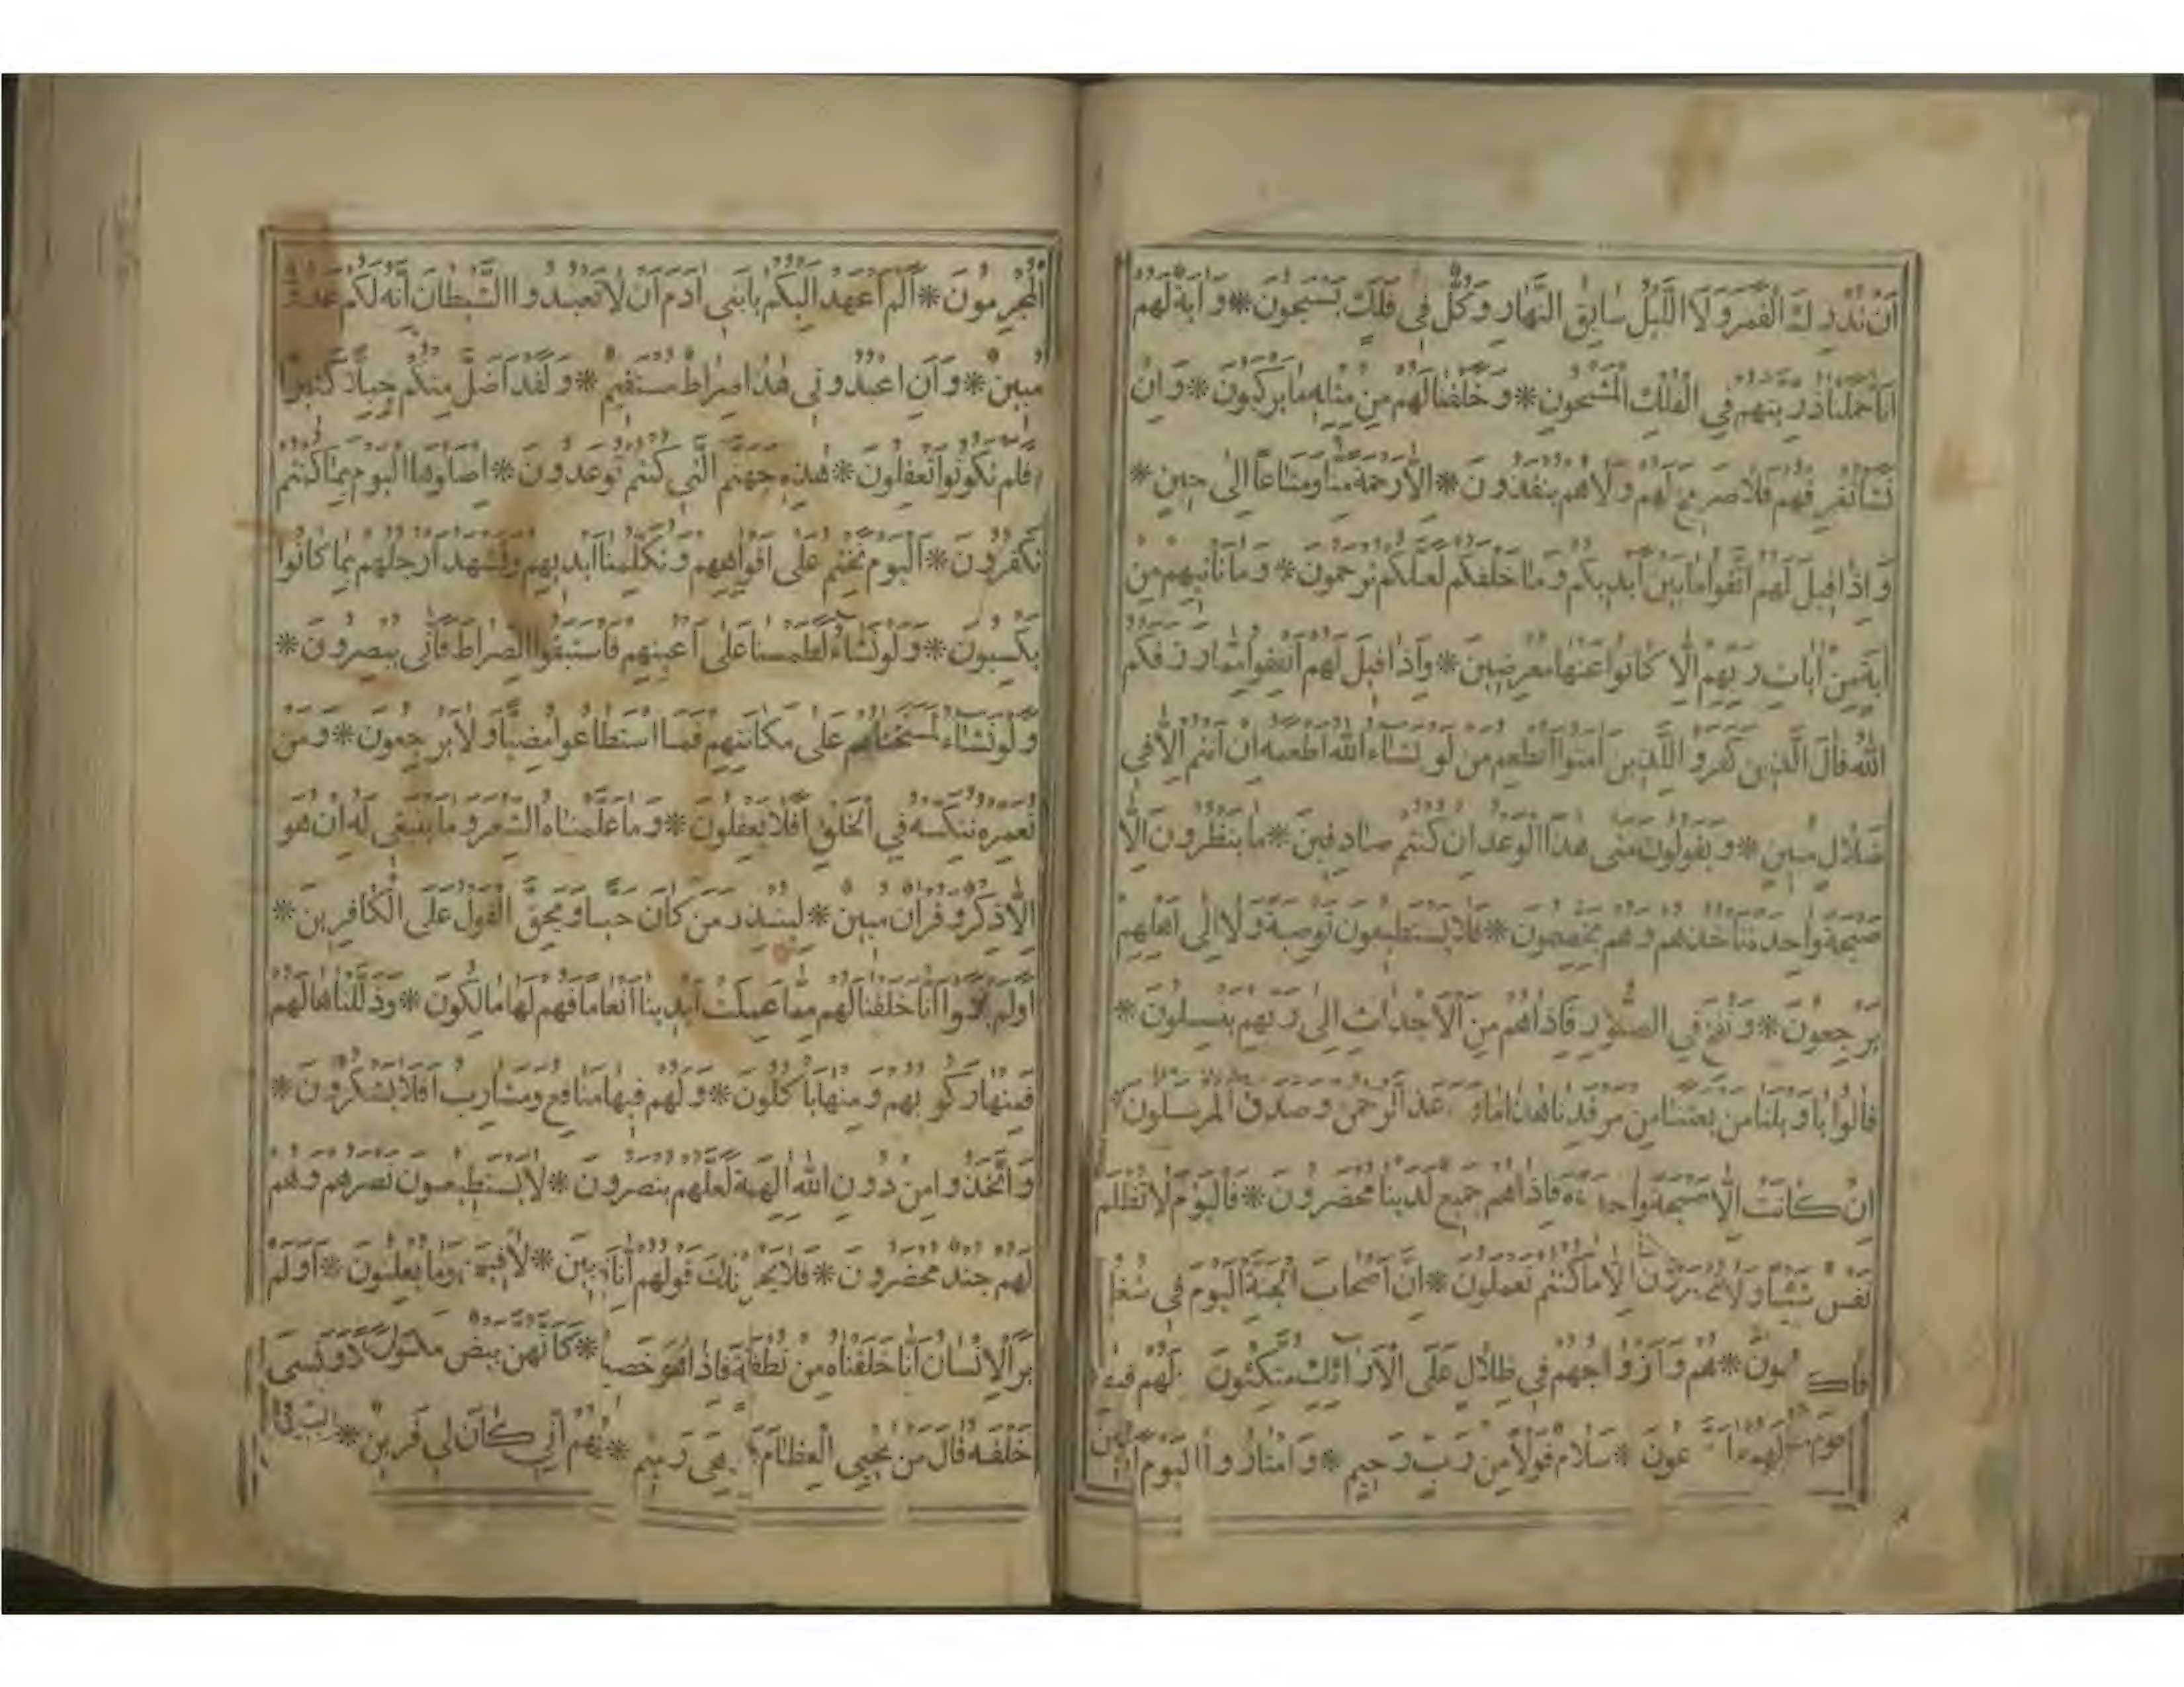 ان تدرك القمر ولا الليل سابق النهار وكل في فلك يسبحون * واية لهم
انا حملنا ذريتهم في الفلك المشحون * وخلقنا لهم من مثله ما يركبون * وان
نشا نغرقهم فلا صريخ لهم ولا هم ينقذون * الا رحمة منا ومتاعا الى حين *
واذا قيل لهم اتقوا ما بين ايديكم وما خلفكم لعلكم ترحمون * وما تاتيهم من
اية من ايات ربهم الا كانوا عنها معرضين * واذا قيل لهم انفقوا مما رزقكم
الله قال الذين كفروا للذين امنوا انطعم من لو نشاء الله اطعمه ان انتم الا في
ضلال مبين * ويقولون متى هذا الوعد ان كنتم صادقين * ما ينظرون الا
صيحة واحدة تاخذهم وهم يخصمون * فلا يستطيعون توصية ولا الى اهلهم
يرجعون * ونفخ في الصور فاذا هم من الاجداث الى ربهم ينسلون *
قالوا يا ويلنا من بعثنا من مرقدنا هذا ما وعد الرحمن وصدق المرسلون *
ان كانت الا صيحة واحدة فاذا هم جميع لدينا محضرون * فاليوم لا تظلم
نفس شيئا ولا تجزون الا ما كنتم تعملون * ان اصحاب الجنة اليوم في شغل
فاكهون * هم وازواجهم في ظلال على الارائك متكئون لهم فيها
لهم ما يدعون * سلام قولا من رب رحيم * وامتازوا اليوم ايها
المجرمون * الم اعهد اليكم يا بني ادم ان لا تعبدوا الشيطان انه لكم عدو
مبين * وان اعبدوني هذا صراط مستقيم * ولقد اضل منكم جبلا كثيرا
افلم تكونوا تعقلون * هذه جهنم التي كنتم توعدون * اصلوها اليوم بما كنتم
تكفرون * اليوم نختم على افواههم وتكلمنا ايديهم وتشهد ارجلهم بما كانوا
يكسبون * ولو نشاء لطمسنا على اعينهم فاستبقوا الصراط فانى يبصرون *
ولو نشاء لمسخناهم على مكانتهم فما استطاعوا مضيا ولا يرجعون * ومن
نعمره ننكسه في الخلق افلا يعقلون * وما علمناه الشعر وما ينبغي له ان هو
الا ذكر وقران مبين * لينذر من كان حيا ويحق القول على الكافرين *
اولم يروا انا خلقنا لهم مما عملت ايدينا انعاما فهم لها مالكون * وذللناها لهم
فمنها ركوبهم ومنها ياكلون * ولهم فيها منافع ومشارب افلا يشكرون *
واتخذوا من دون الله الهة لعلهم ينصرون * لا يستطيعون نصرهم وهم
لهم جند محضرون * فلا يحزنك قولهم انا بين * لا فيه وما يعلنون * اولم
ير الانسان انا خلقناه من نطفة فاذا هو خصيم * كانهن بيض مكنون ونسي
خلقه قال من يحيي العظام وهي رميم * منهم اني كان لي قرين *